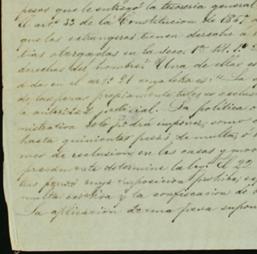 pesos que le entregó la tesorería general
el artº 33 de la Constitucion de 1857
que los extrangeros tienen derecho a
tias otorgadas en la secc. 1ª tit. 1º
derechos del hombre. Una de ellas es
ado en el artº 21 cuya letra es: "La
de las penas propiamente tales es esclus
la autoridad judicial. La política o
nistrativa solo podrá imponer, como
hasta quinientos pesos de multa, ó
mes de reclusion en los casos y modo
presamente determine la ley. El 22
las penas cuya imposicion prohibe,
multa escesiva y la confiscacion de
La aplicacion de una pena supon